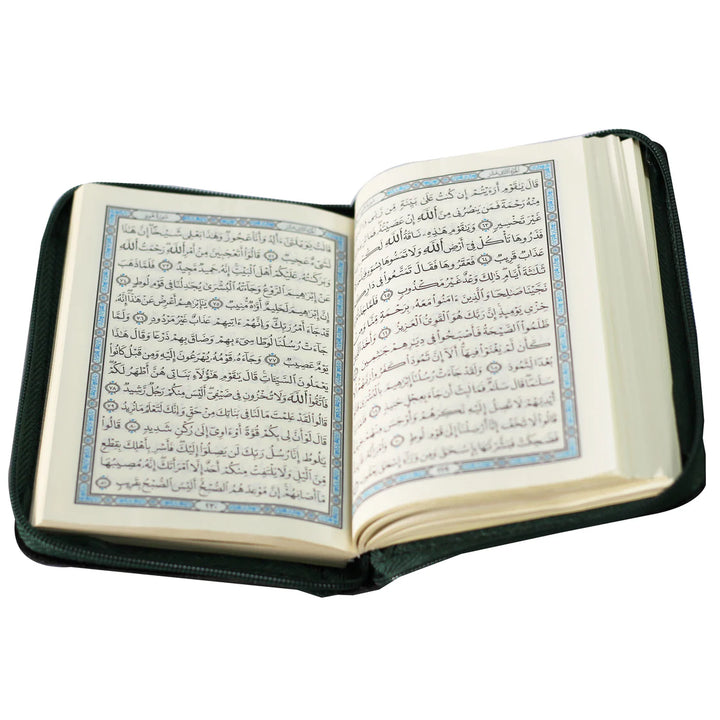 الجزء الثاني عشر
قَالَ يَـٰقَوْمِ أَرَءَيْتُمْ إِن كُنتُ عَلَىٰ بَيِّنَةٍ مِّن
مِنْهُ رَحْمَةً فَمَن يَنصُرُنِى مِنَ ٱللَّهِ إِنْ عَصَيْتُهُۥ
غَيْرَ تَخْسِيرٍ ٦٣ وَيَـٰقَوْمِ هَـٰذِهِۦ نَاقَةُ ٱللَّهِ لَكُمْ
فَذَرُوهَا تَأْكُلْ فِىٓ أَرْضِ ٱللَّهِ وَلَا تَمَسُّوهَا
عَذَابٌ قَرِيبٌ ٦٤ فَعَقَرُوهَا فَقَالَ تَمَتَّعُوا۟ فِى
ثَلَـٰثَةَ أَيَّامٍ ذَٰلِكَ وَعْدٌ غَيْرُ مَكْذُوبٍ ٦٥
نَجَّيْنَا صَـٰلِحًا وَٱلَّذِينَ ءَامَنُوا۟ مَعَهُۥ بِرَحْمَةٍ مِّنَّا
خِزْىِ يَوْمِئِذٍ إِنَّ رَبَّكَ هُوَ ٱلْقَوِىُّ ٱلْعَزِيزُ ٦٦
ظَلَمُوا۟ ٱلصَّيْحَةُ فَأَصْبَحُوا۟ فِى دِيَـٰرِهِمْ
كَأَن لَّمْ يَغْنَوْا۟ فِيهَآ أَلَآ إِنَّ ثَمُودَا۟ كَفَرُوا۟
بُعْدًا لِّثَمُودَ ٦٨ وَلَقَدْ جَآءَتْ رُسُلُنَآ إِبْرَٰهِيمَ
سَلَـٰمًا قَالَ سَلَـٰمٌ فَمَا لَبِثَ أَن جَآءَ بِعِجْلٍ حَنِيذٍ
أَيْدِيَهُمْ لَا تَصِلُ إِلَيْهِ نَكِرَهُمْ وَأَوْجَسَ مِنْهُمْ
قَالُوا۟ لَا تَخَفْ إِنَّآ أُرْسِلْنَآ إِلَىٰ قَوْمِ لُوطٍ ٧٠
فَضَحِكَتْ فَبَشَّرْنَـٰهَا بِإِسْحَـٰقَ وَمِن وَرَآءِ إِسْحَـٰقَ
٢٢٩
الجزء الثاني عشر
سورة هود
قَالَتْ يَـٰوَيْلَتَىٰٓ ءَأَلِدُ وَأَنَا۠ عَجُوزٌ وَهَـٰذَا بَعْلِى شَيْخًا إِنَّ هَـٰذَا
لَشَىْءٌ عَجِيبٌ ٧٢ قَالُوٓا۟ أَتَعْجَبِينَ مِنْ أَمْرِ ٱللَّهِ رَحْمَتُ ٱللَّهِ
وَبَرَكَـٰتُهُۥ عَلَيْكُمْ أَهْلَ ٱلْبَيْتِ إِنَّهُۥ حَمِيدٌ مَّجِيدٌ ٧٣ فَلَمَّا ذَهَبَ
عَنْ إِبْرَٰهِيمَ ٱلرَّوْعُ وَجَآءَتْهُ ٱلْبُشْرَىٰ يُجَـٰدِلُنَا فِى قَوْمِ لُوطٍ ٧٤
إِنَّ إِبْرَٰهِيمَ لَحَلِيمٌ أَوَّٰهٌ مُّنِيبٌ ٧٥ يَـٰٓإِبْرَٰهِيمُ أَعْرِضْ عَنْ هَـٰذَآ إِنَّهُۥ
قَدْ جَآءَ أَمْرُ رَبِّكَ وَإِنَّهُمْ ءَاتِيهِمْ عَذَابٌ غَيْرُ مَرْدُودٍ ٧٦ وَلَمَّا
جَآءَتْ رُسُلُنَا لُوطًا سِىٓءَ بِهِمْ وَضَاقَ بِهِمْ ذَرْعًا وَقَالَ هَـٰذَا
يَوْمٌ عَصِيبٌ ٧٧ وَجَآءَهُۥ قَوْمُهُۥ يُهْرَعُونَ إِلَيْهِ وَمِن قَبْلُ كَانُوا۟
يَعْمَلُونَ ٱلسَّيِّـَٔاتِ قَالَ يَـٰقَوْمِ هَـٰٓؤُلَآءِ بَنَاتِى هُنَّ أَطْهَرُ لَكُمْ
فَٱتَّقُوا۟ ٱللَّهَ وَلَا تُخْزُونِ فِى ضَيْفِىٓ أَلَيْسَ مِنكُمْ رَجُلٌ رَّشِيدٌ ٧٨
قَالُوا۟ لَقَدْ عَلِمْتَ مَا لَنَا فِى بَنَاتِكَ مِنْ حَقٍّ وَإِنَّكَ لَتَعْلَمُ مَا نُرِيدُ ٧٩
قَالَ لَوْ أَنَّ لِى بِكُمْ قُوَّةً أَوْ ءَاوِىٓ إِلَىٰ رُكْنٍ شَدِيدٍ ٨٠ قَالُوا۟
يَـٰلُوطُ إِنَّا رُسُلُ رَبِّكَ لَن يَصِلُوٓا۟ إِلَيْكَ فَأَسْرِ بِأَهْلِكَ بِقِطْعٍ
مِّنَ ٱلَّيْلِ وَلَا يَلْتَفِتْ مِنكُمْ أَحَدٌ إِلَّا ٱمْرَأَتَكَ إِنَّهُۥ مُصِيبُهَا
مَآ أَصَابَهُمْ إِنَّ مَوْعِدَهُمُ ٱلصُّبْحُ أَلَيْسَ ٱلصُّبْحُ بِقَرِيبٍ ٨١
٢٣٠